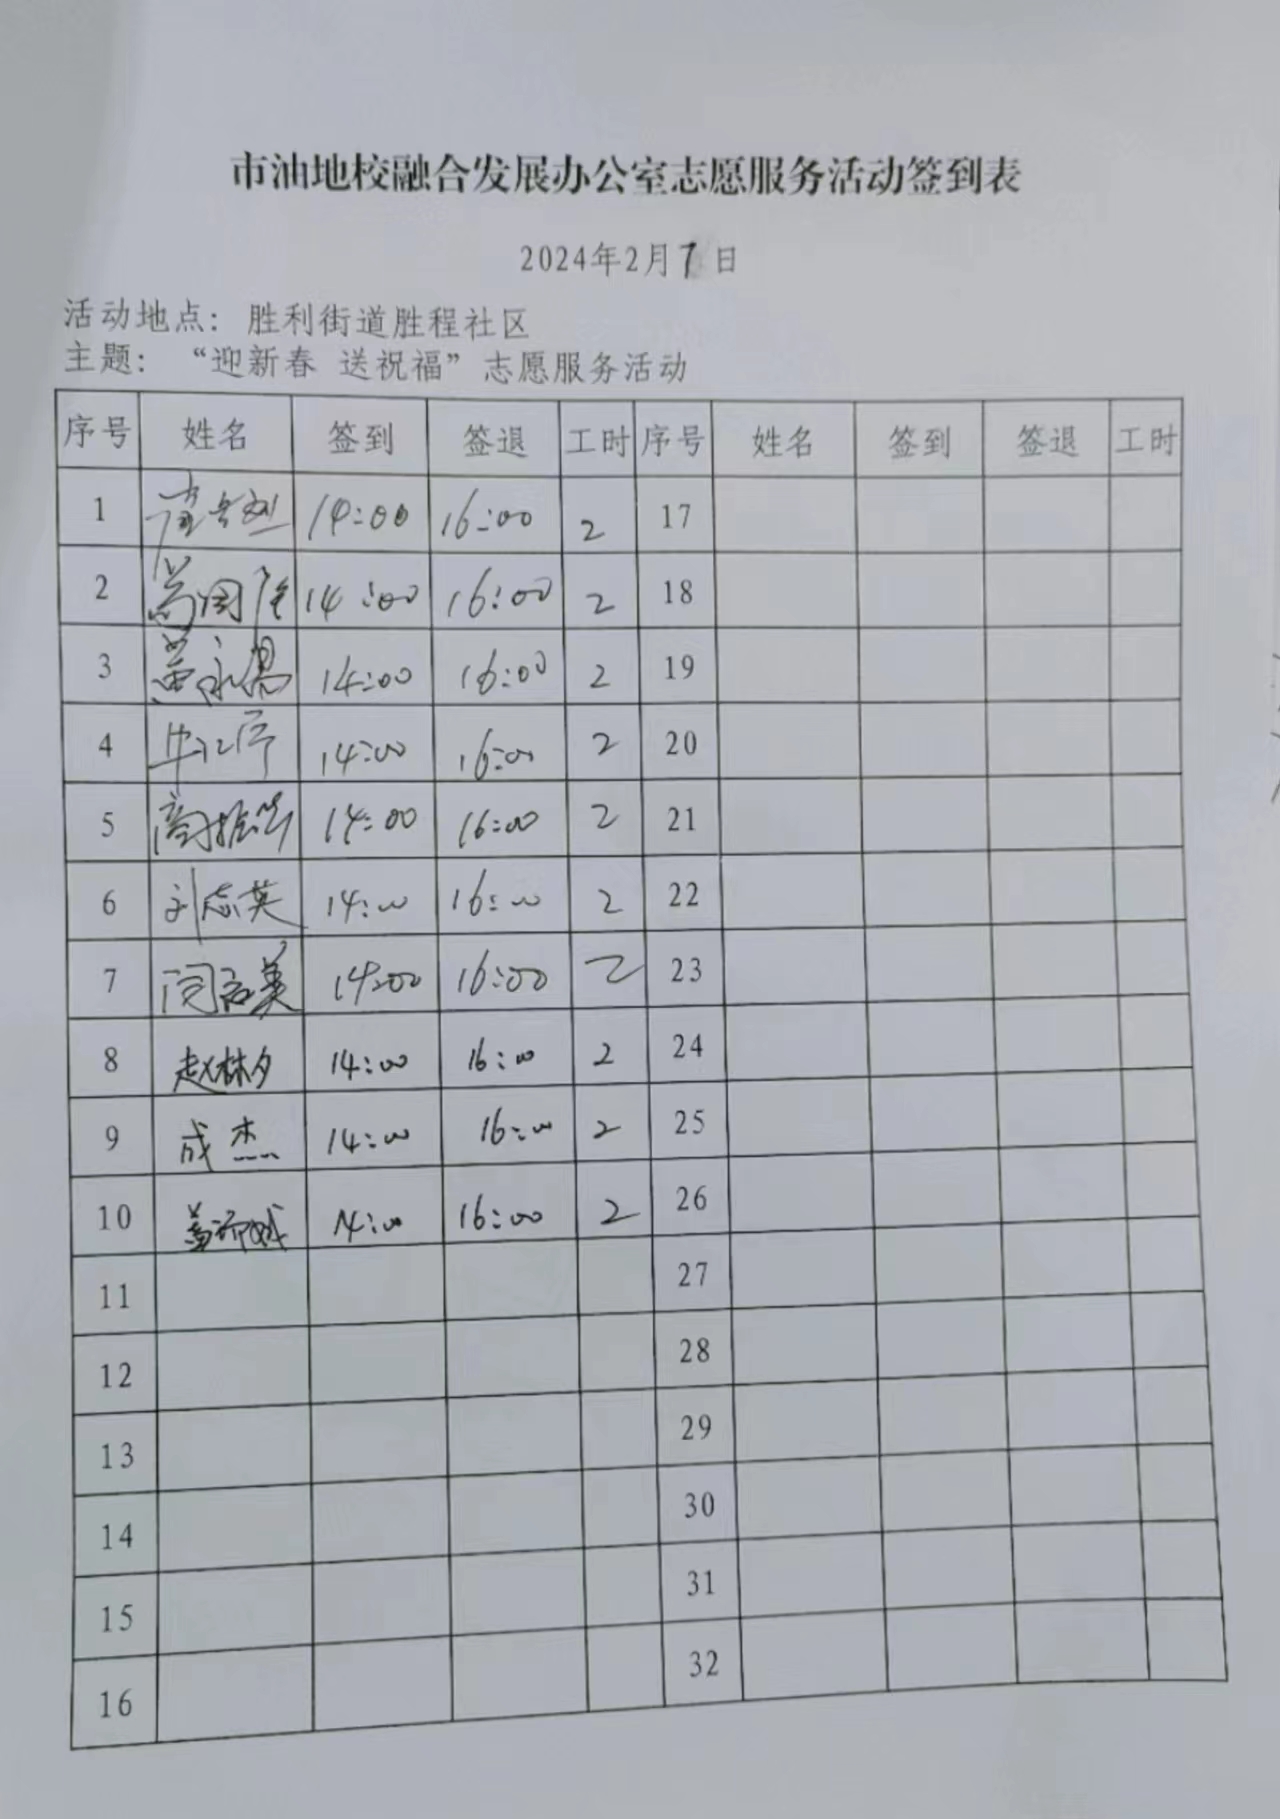 市油地校融合发展办公室志愿服务活动签到表
2024年2月7日
活动地点：胜利街道胜程社区
主题：“迎新春 送祝福”志愿服务活动
序号 姓名 签到 签退 工时 序号 姓名 签到 签退 工时
1 14:00 16:00 2 17
2 14:00 16:00 2 18
3 14:00 16:00 2 19
4 14:00 16:00 2 20
5 14:00 16:00 2 21
6 刘志英 14:00 16:00 2 22
7 14:00 16:00 2 23
8 赵林夕 14:00 16:00 2 24
9 成杰 14:00 16:00 2 25
10 14:00 16:00 2 26
11 27
12 28
13 29
14 30
15 31
16 32